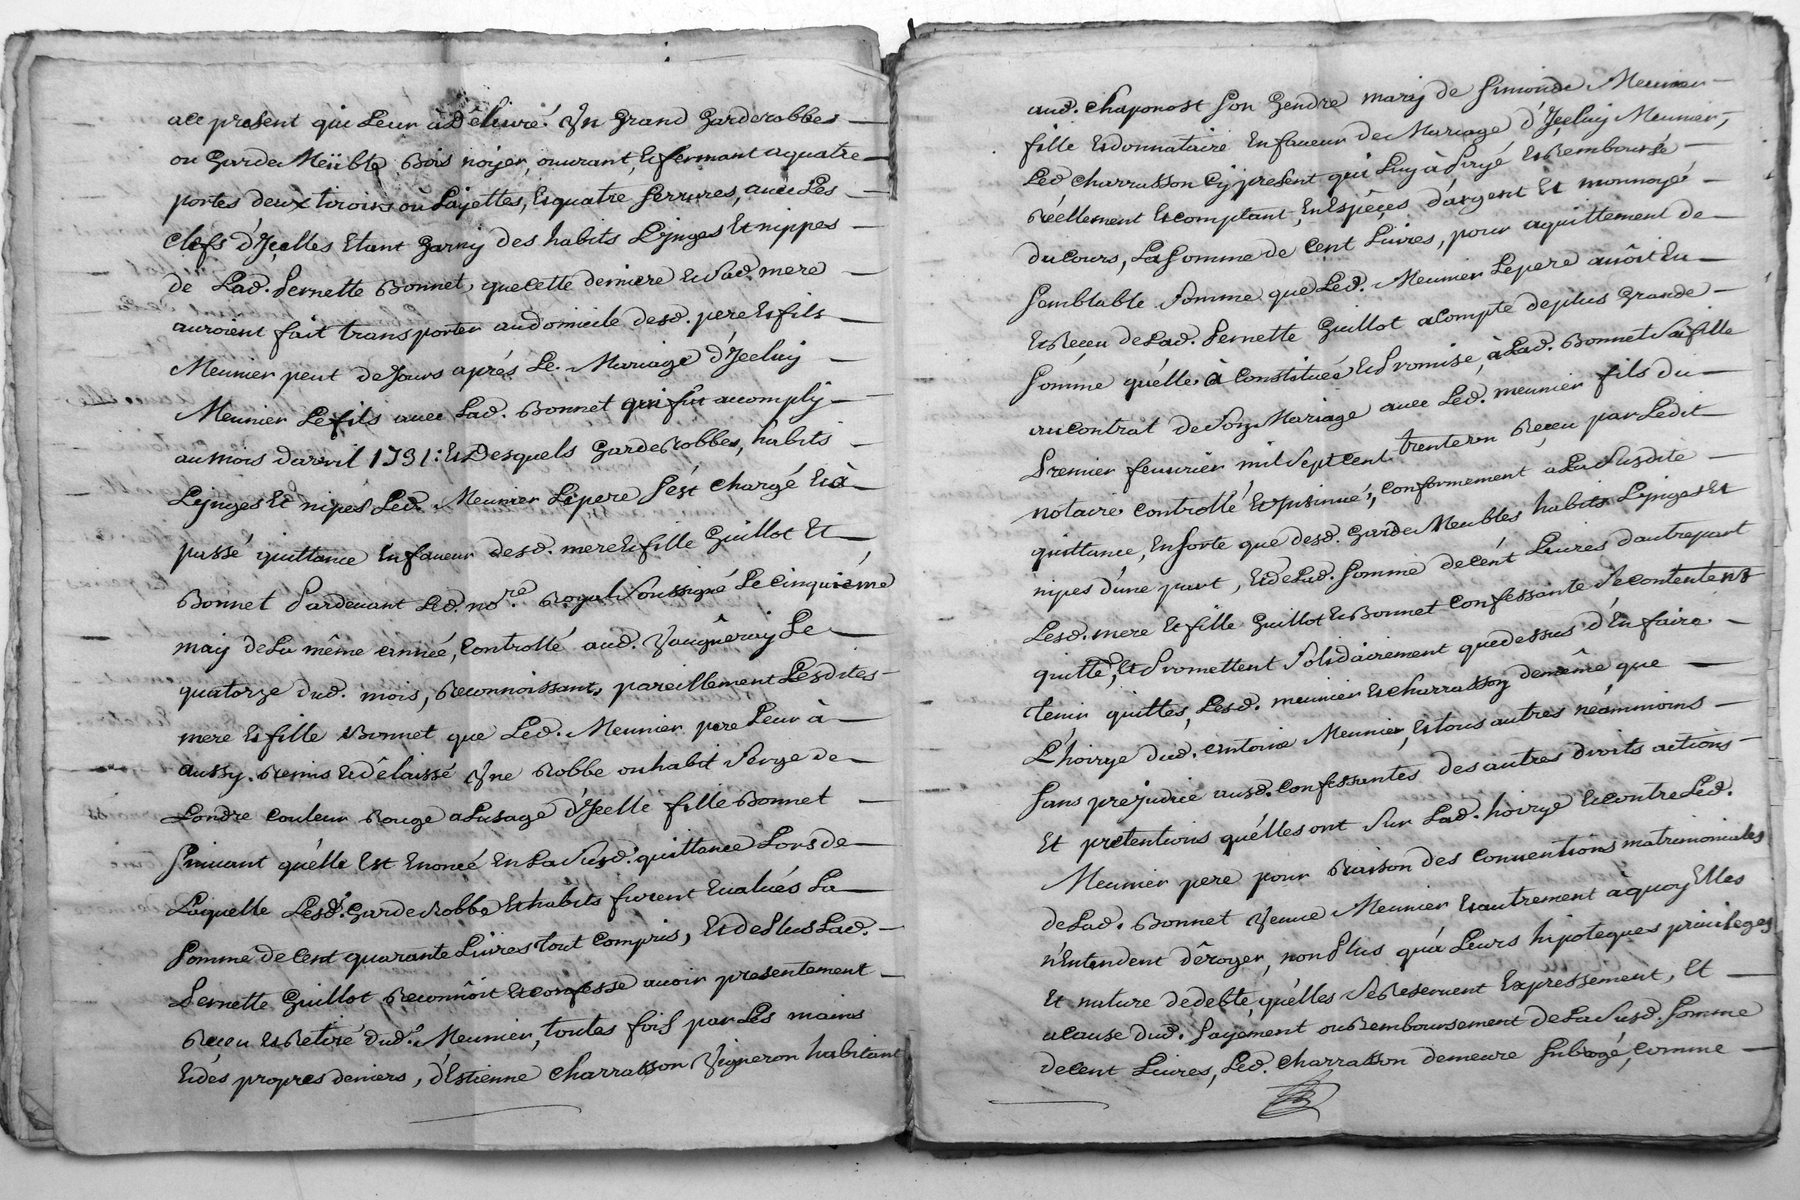 ace present qui Leur à Délivré. Un Grand Garderobbes
ou Garde Meüble Bois noijer, ouvrant, et fermant a quatre
portes deux tiroirs où Laijettes, et quatre serrures, avec Les
clefs d'Jçelles Etant Garnij des habits Lijnges Et nippes
de Lad. Pernette Bonnet, que cette derniere et sad. mere
auroient fait transporter au domicile desd. pere et fils
Meunier peut de Jours aprés Le. Mariage d'Jceluij
Meunier Le fils avec Lad. Bonnet qui fut accomplij
au mois d'avril 1731: et Desquels GardeRobbes, habits
Lijnges Et nipes Led. Meunier Le pere s'ést chargé et à
passé quittance En faveur desd. mere et fille Guillot Et
Bonnet Pardevant Led. nore. Roijal soussigné Le cinquiéme
maij de La même année, Controllé aud. Vaugneraij Le
quatorze dud. mois, Reconnoissants pareillement Lesdites
mere et fille Bonnet que Led. Meunier pere Leur à
aussij. Remis et délaissé Une Robbe ou habit serge de
Londre couleur Rouge a Lusage d'Jcelle fille Bonnet
suivant qu'elle Est Enoncé En La susd. quittance Lors de
Laquelle Lesd. GardeRobbe et habits furent Evalués La
somme de Cent quarante Livres tout compris, et de Plus Lad.
Pernette Guillot Reconnôit et confesse avoir presentement
Receu et Retiré dud. Meunier, toutes fois par Les mains
et dés propres deniers, d'Estienne Charrasson Vigneron habitant
aud. Chaponost son Gendre marij de simonde Meunier
fille et donnataire En faveur de Mariage d'Jçeluij Meunier,
Led Charrasson Cij present qui Luij à Paijé et Remboursé
Réellement et comptant, En Espêçes d'argent Et monnoijé
du Cours, La somme de Cent Livres, pour aquittement de
semblable somme que Led. Meunier Le pere avôit Eu
et Receu de Lad. Pernette Guillot acompte de plus Grande
sómme qu'élle à constituée et Promise, à Lad. Bonnet sa fille
au contrat de son Mariage avec Led. meunier fils du
Premier fevrier mil sept cent trente un Reçeu par Ledit
notaire Controllé et Jnsinué, conformement a La susdite
quittance, En sorte que desd. Garde Meubles habits Lijnges et
nipes d'une part, et de Lad. somme de Cént Livres d'autre part
Lesd. mere Et fille Guillot et Bonnet Confessante se contentent
quitte, Et Promettent solidairement que dessus d'En faire
tenir quittes, Lesd. meunier et Charrasson de même que
L'hoirye dud. antoine Meunier, et tous autres néammoins
sans prejudice ausd. confessantes des autres droits actions
Et pretentions qu'elles ont sur Lad. hoirye et contre Led.
Meunier pere pour Raison des Conventions matrimoniales
de Lad. Bonnet Veuve Meunier et autrement à quoij Elles
n'Entendent dêroger, non Plus qu'à Leurs hipoteques privileges
Et nature de debte, qu'élles se Reservent Expressement, Et
a cause dud. Paijement ou Remboursement de La susd. somme
de Cent Livres, Led. Charrasson demeure subrogé, comme